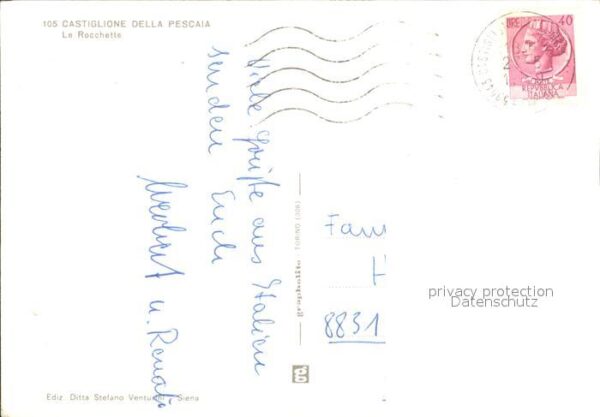 105 CASTIGLIONE DELLA PESCAIA
Le Rocchette
LIRE 40
POSTE
REPUBBLICA
ITALIANA
Viele Grüße aus Italien
senden Euch
Herbert u. Renate
graphollio TORINO (308)
Fam
H
8831
privacy protection
Datenschutz
g
Ediz. Ditta Stefano Ventu Siena